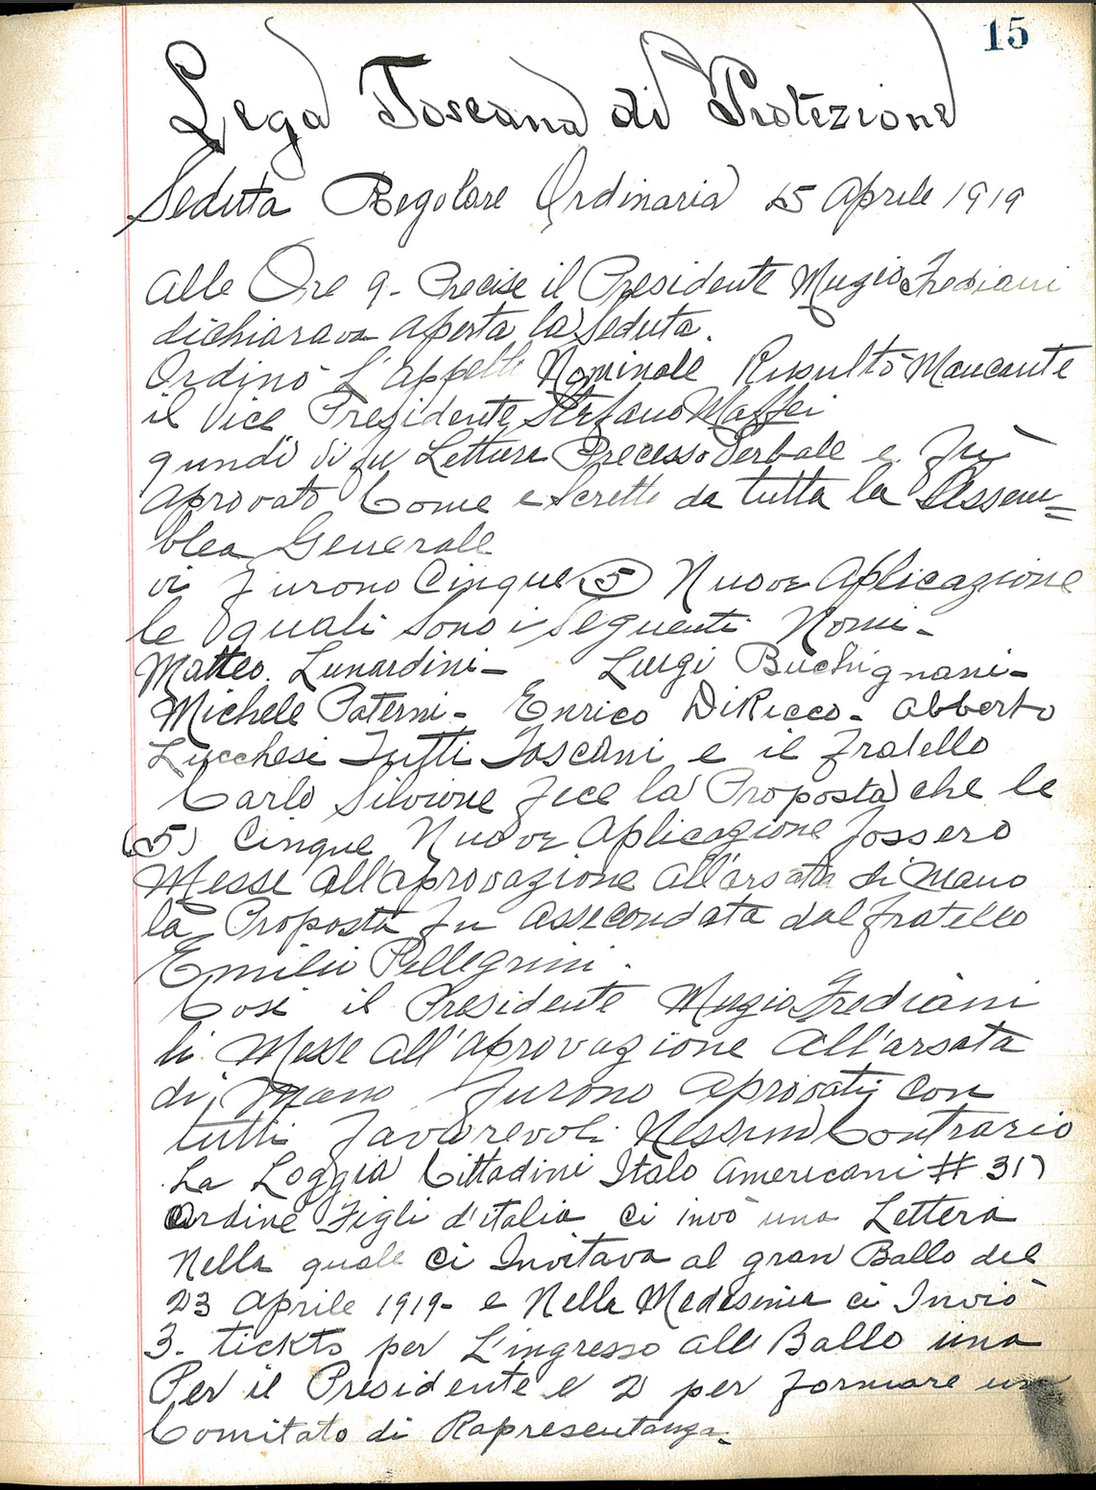 15
Lega Toscana di Protezione
Seduta Regolare Ordinaria 25 Aprile 1919
Alle Ore 9 - Precise il Presidente Mugio Frediani
dichiarava Aperta la Seduta.
Ordinò L'Appello Nominale Risultò Mancante
il Vice Presidente Stefano Maffei
qundi vi fu Letture Precesso Verbale e Fù
Aprovato Come e Scretto da tutta la Assem=
blea Generale
vi furono Cinque (5) Nuove Aplicazione
le quali sono i seguenti Nomi -
Matteo. Lunardini - Luigi Buchignani -
Michele Paterni - Enrico DiRicco - Abberto
Lucchesi Tutti Toscani e il Fratello
Carlo Silvione fece la Proposta che le
(5) Cinque Nuove Aplicazione fossero
Messe all'aprovazione all'arsata di Mano
la Proposta fu assecondata dal fratello
Emilio Pellegrini.
Cosi il Presidente Mugio Frediani
li Messe all'aprovazione all'arsata
di Mano furono aprovati con
tutti favorevoli Nessuno Contrario
La Loggia Cittadini Italo Americani # 317
Ordine Figli d'italia ci invò una Lettera
Nella quale ci Invitava al gran Ballo del
23 Aprile 1919 - e Nella Medesima ci Inviò
3. tickts per L'ingresso all Ballo una
Per il Presidente e 2 per formare un
Comitato di Rapresentanza.